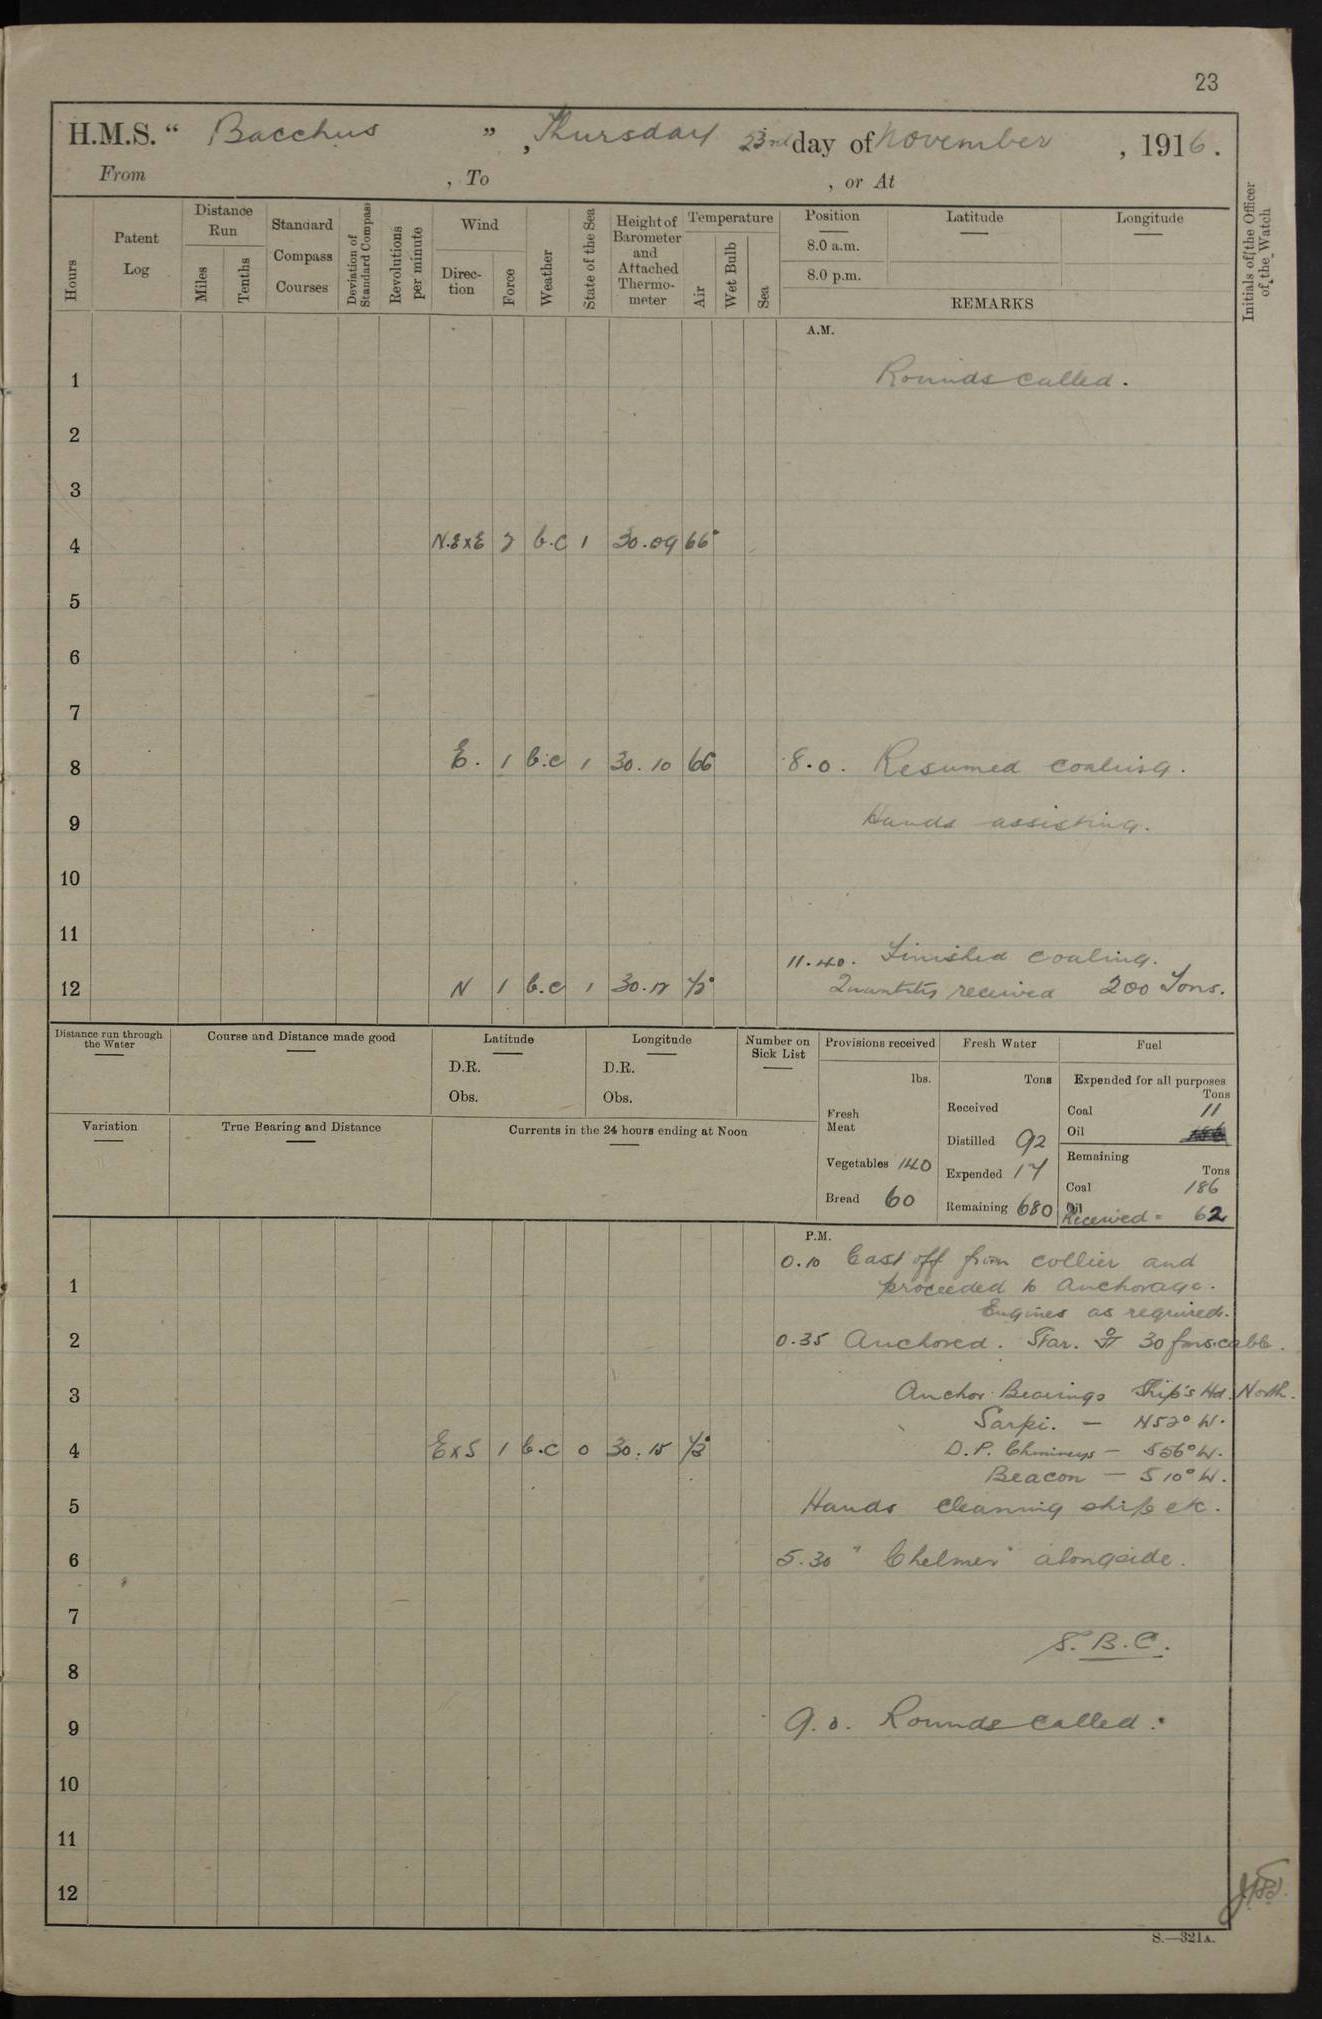 23
H.M.S. “ Bacchus ” , Thursday 23rd day of November , 1916.
From , To , or At
Hours
Patent Log
Distance Run
Miles
Tenths
Standard Compass Courses
Deviation of Standard Compass
Revolutions per minute
Wind
Direc-tion
Force
Weather
State of the Sea
Height of Barometer and Attached Thermo-meter
Temperature
Air
Wet Bulb
Sea
Position
Latitude
Longitude
8.0 a.m.
8.0 p.m.
REMARKS
Initials of the Officer of the Watch
A.M.
1 Rounds called.
2
3
4 N.E x E b.c 1 30.09 66°
5
6
7
8 E. 1 b.c 1 30.10 66 8.0. Resumed coaling.
9 Hands assisting.
10
11
11.40. Finished coaling.
12 N 1 b.c 1 30.12 Quantity received 200 Tons.
Distance run through the Water
Course and Distance made good
Latitude
D.R.
Obs.
Longitude
D.R.
Obs.
Number on Sick List
Variation
True Bearing and Distance
Currents in the 24 hours ending at Noon
Provisions received
lbs.
Fresh Meat
Vegetables 140
Bread 60
Fresh Water
Tons
Received
Distilled 92
Expended 17
Remaining 680
Fuel
Expended for all purposes
Tons
Coal 11
Oil
Remaining
Tons
Coal 186
Oil
Received = 62
P.M.
0.10 Cast off from collier and
1 proceeded to anchorage.
Engines as required.
2 0.35 Anchored. Star. 30 fms.cable.
3 Anchor Bearings Ship's Hd. North.
Sarpi. — N52° W.
4 E x S 1 b.c 0 30.15 D.P. Chimneys — S56° W.
Beacon — S 10° W.
5 Hands cleaning ship etc.
6 5.30 "Chelmer" alongside.
7
S.B.C.
8
9 9.0. Rounds called.
10
11
12
S.—321A.